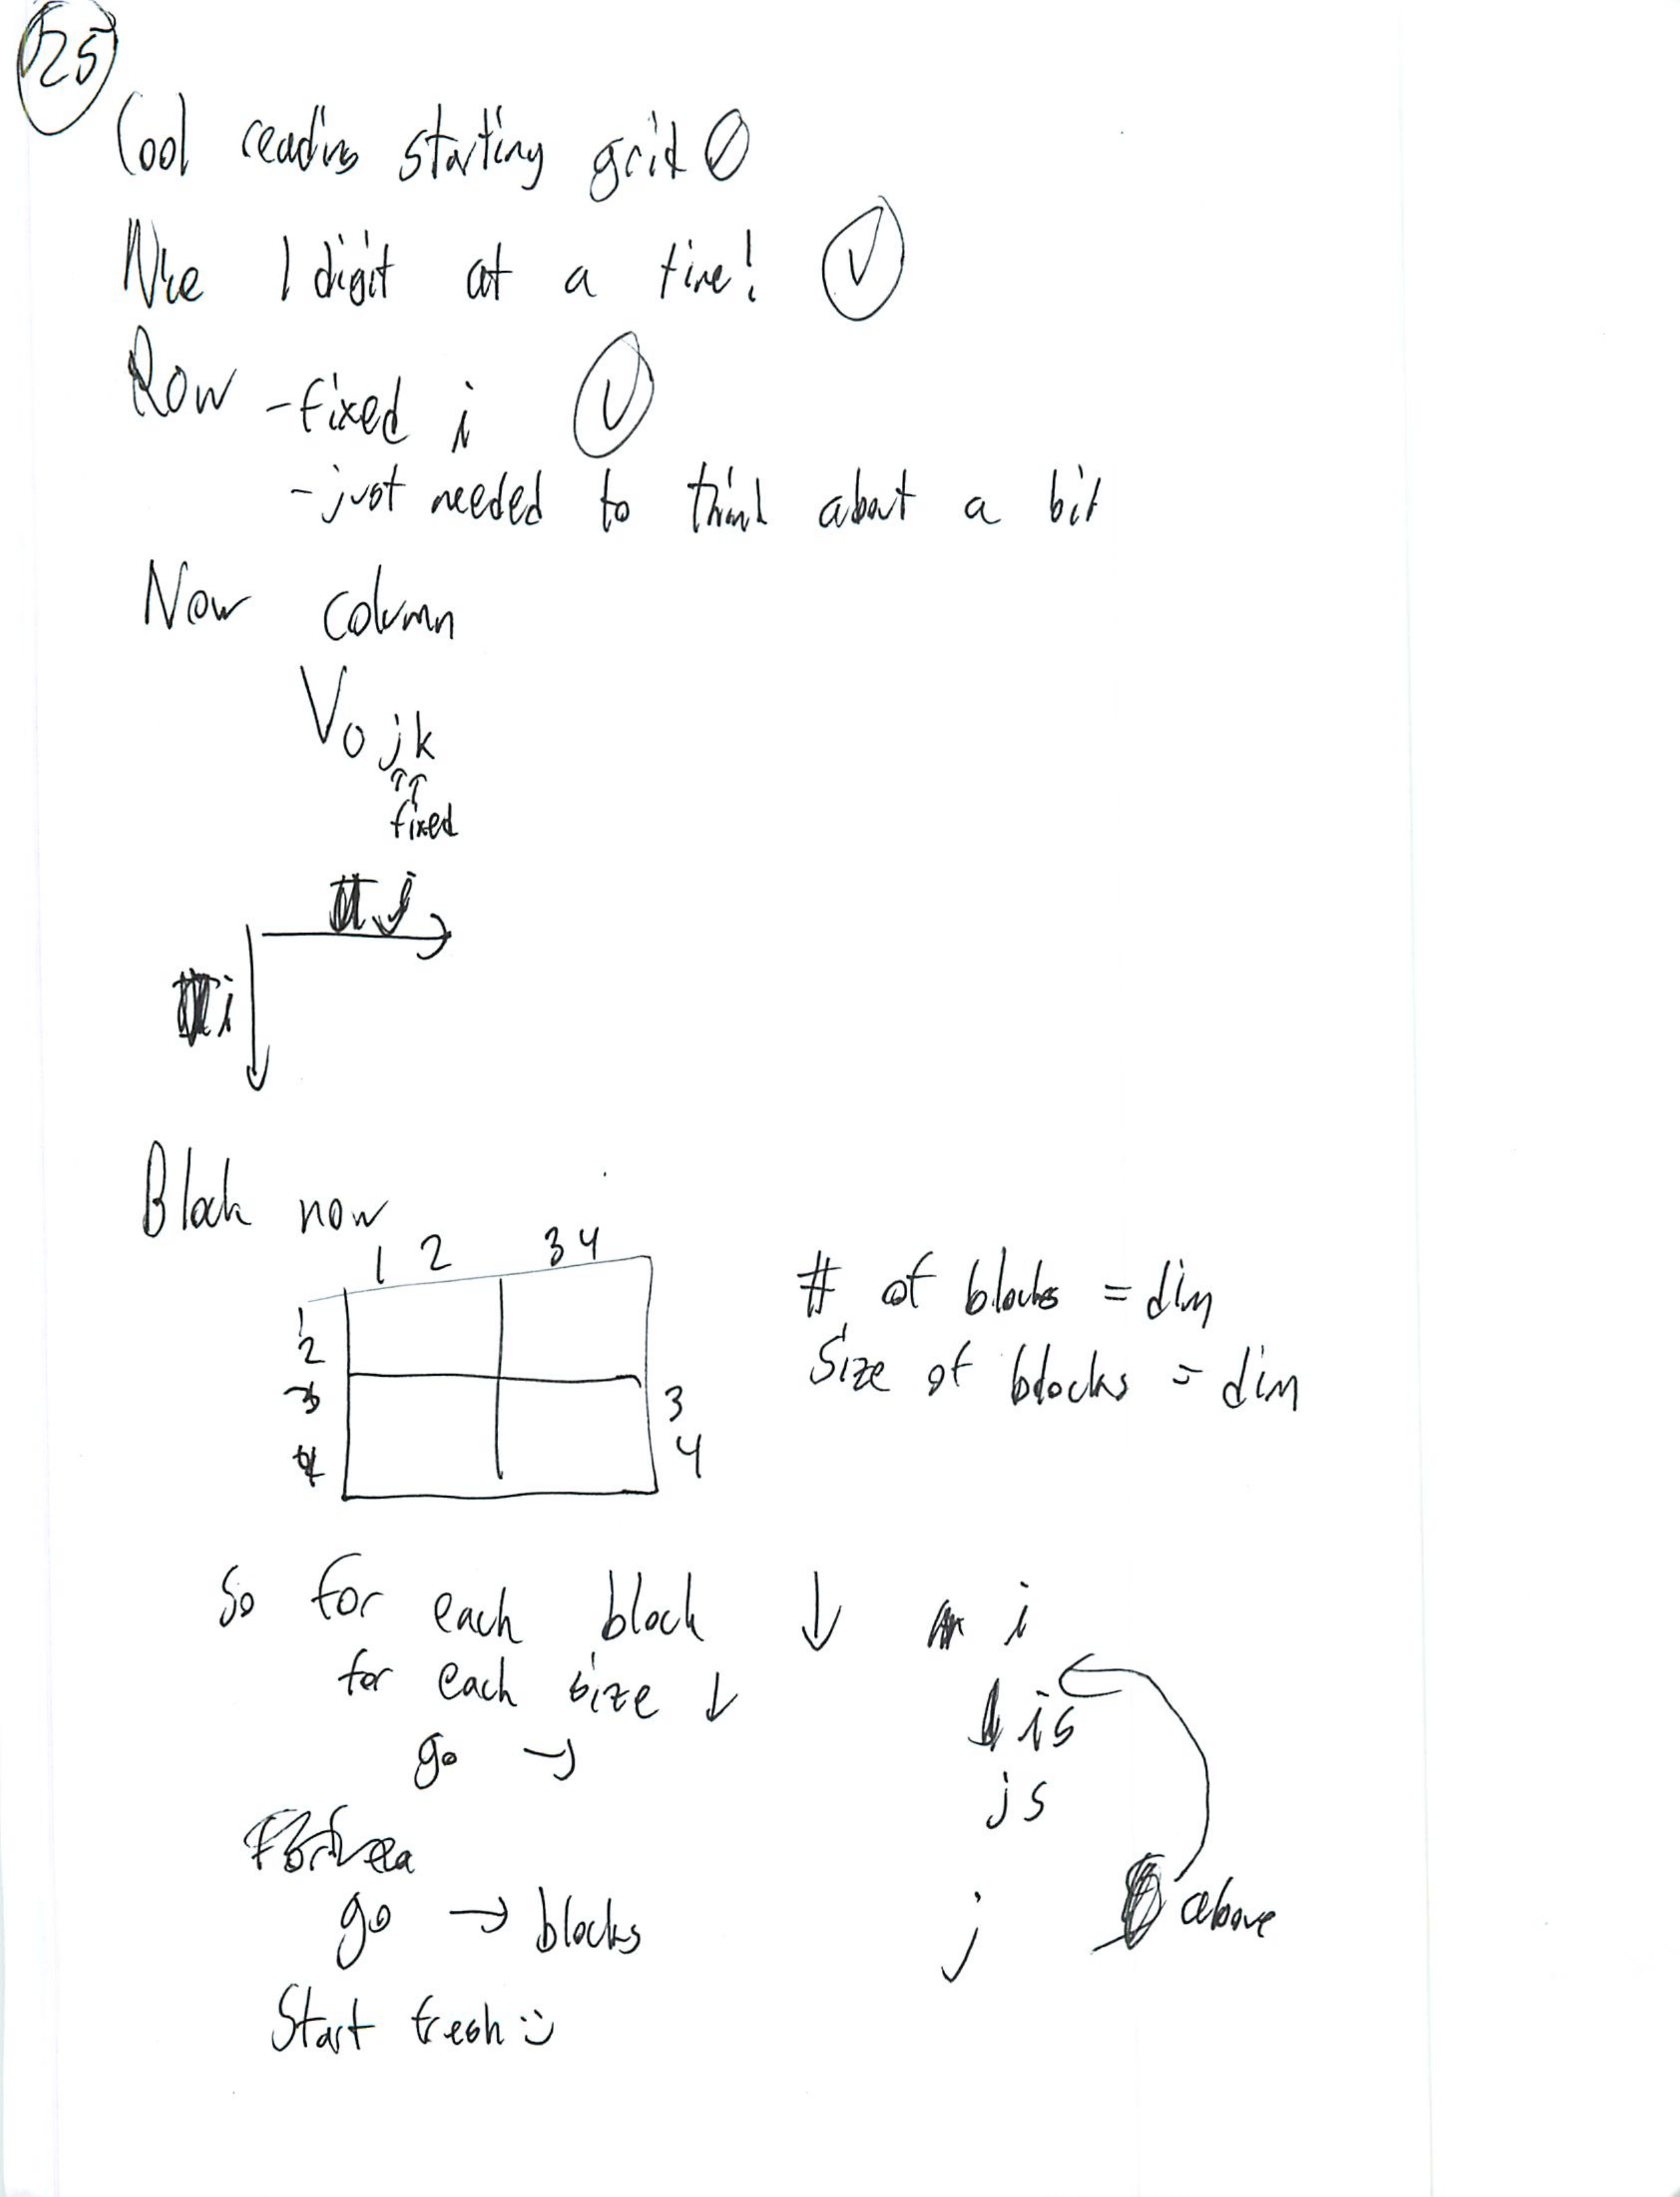 25
Cool reading starting grid
Nice 1 digit at a time!
Row - fixed i
- just needed to think about a bit
Now column
V0jk
fixed
j
i
Block now
1 2 3 4
1
2
3
4
3
4
# of blocks = dim
Size of blocks = dim
So for each block ↓ i
for each size ↓ is
go → js
go → blocks j above
Start fresh :)